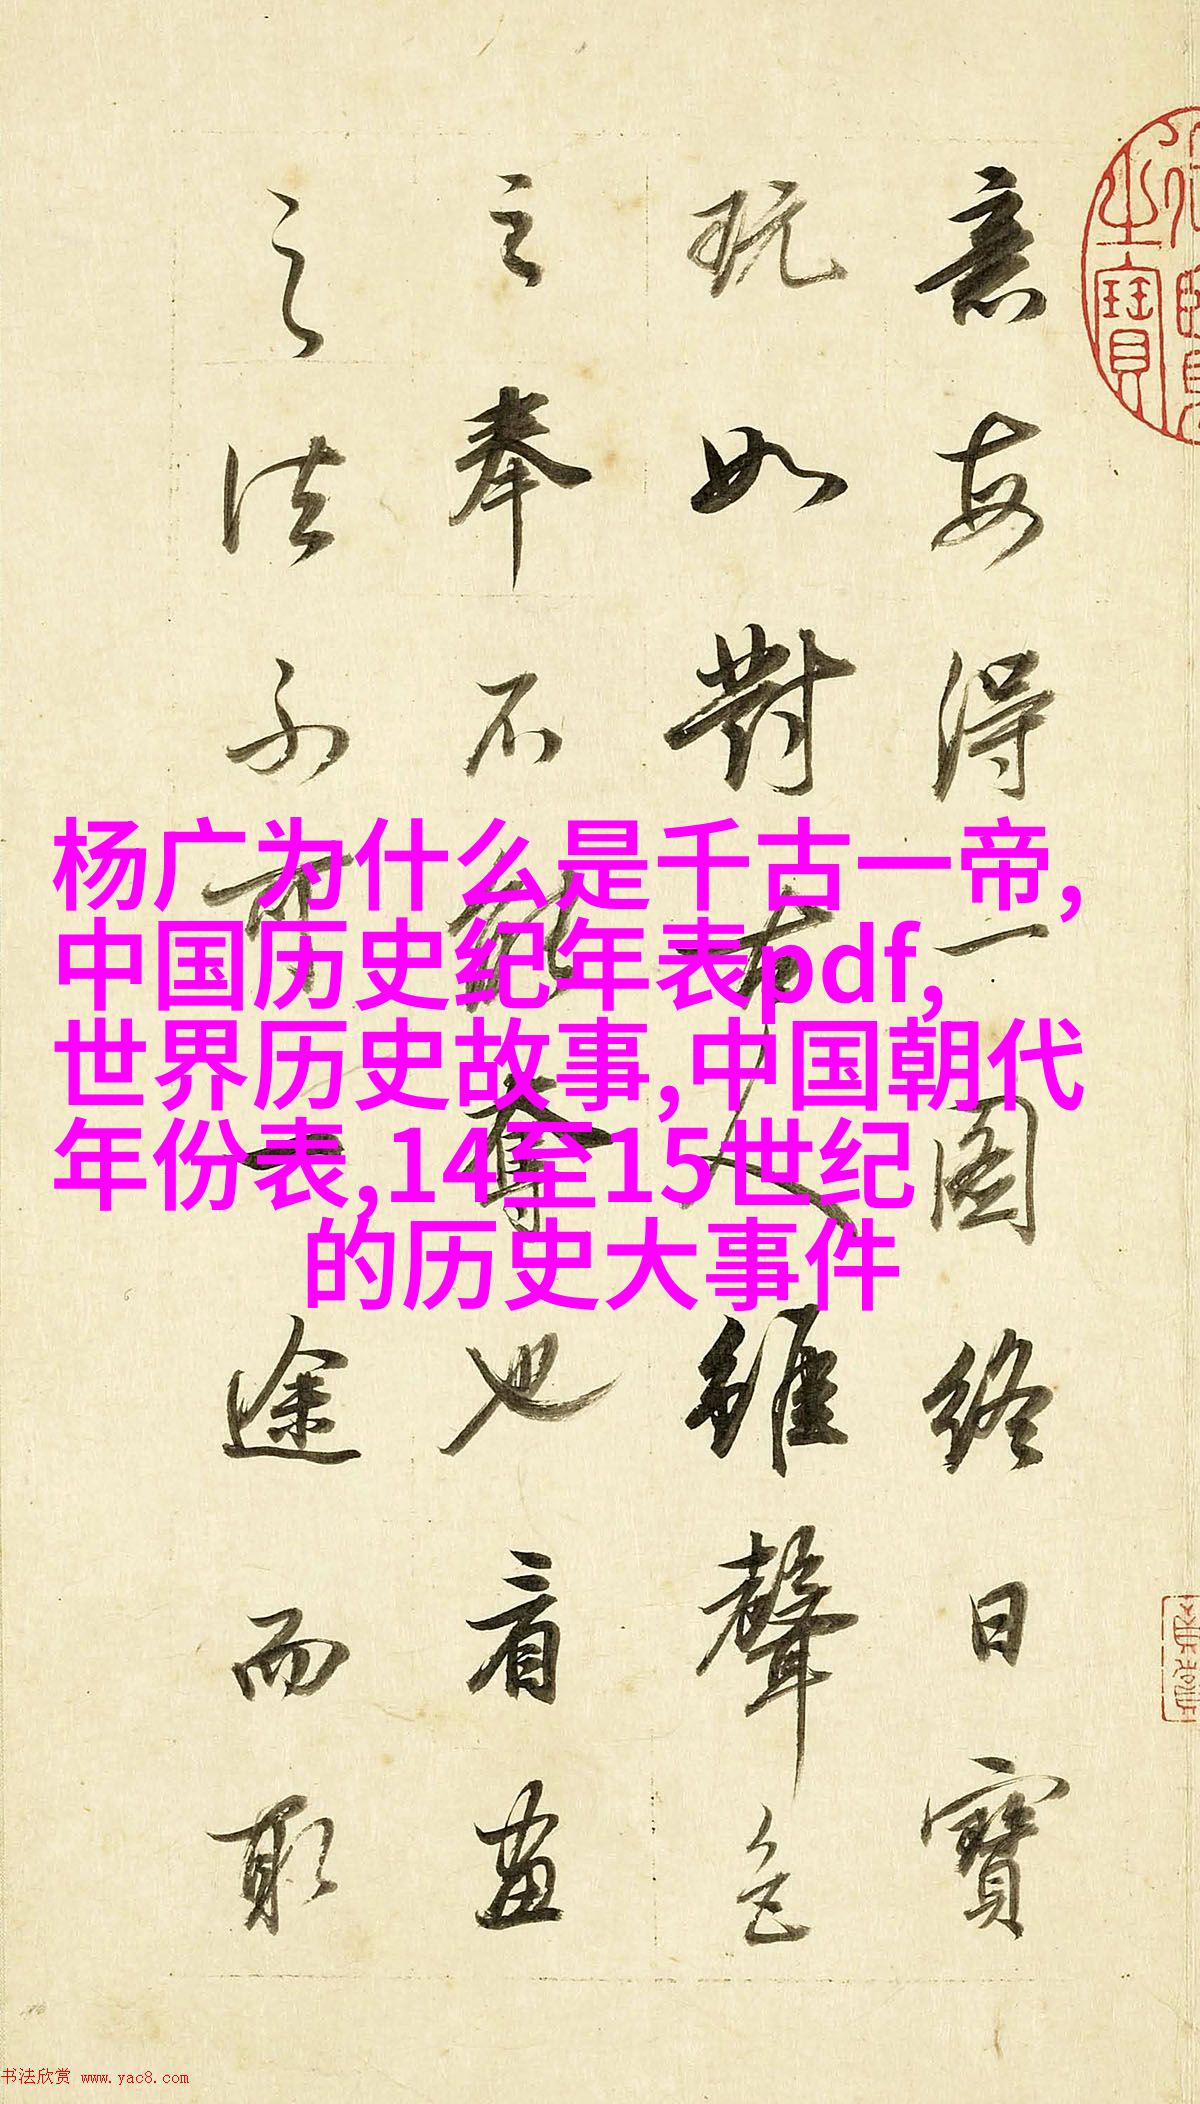 意每得一圖終日寶
玩如對古人雖聲色
之奉不能奪也看畫
之法不可一途而取
之寶
杨广为什么是千古一帝,
中国历史纪年表pdf,
世界历史故事,中国朝代
年份表,14至15世纪
的历史大事件
书法欣赏 www.yac8.com